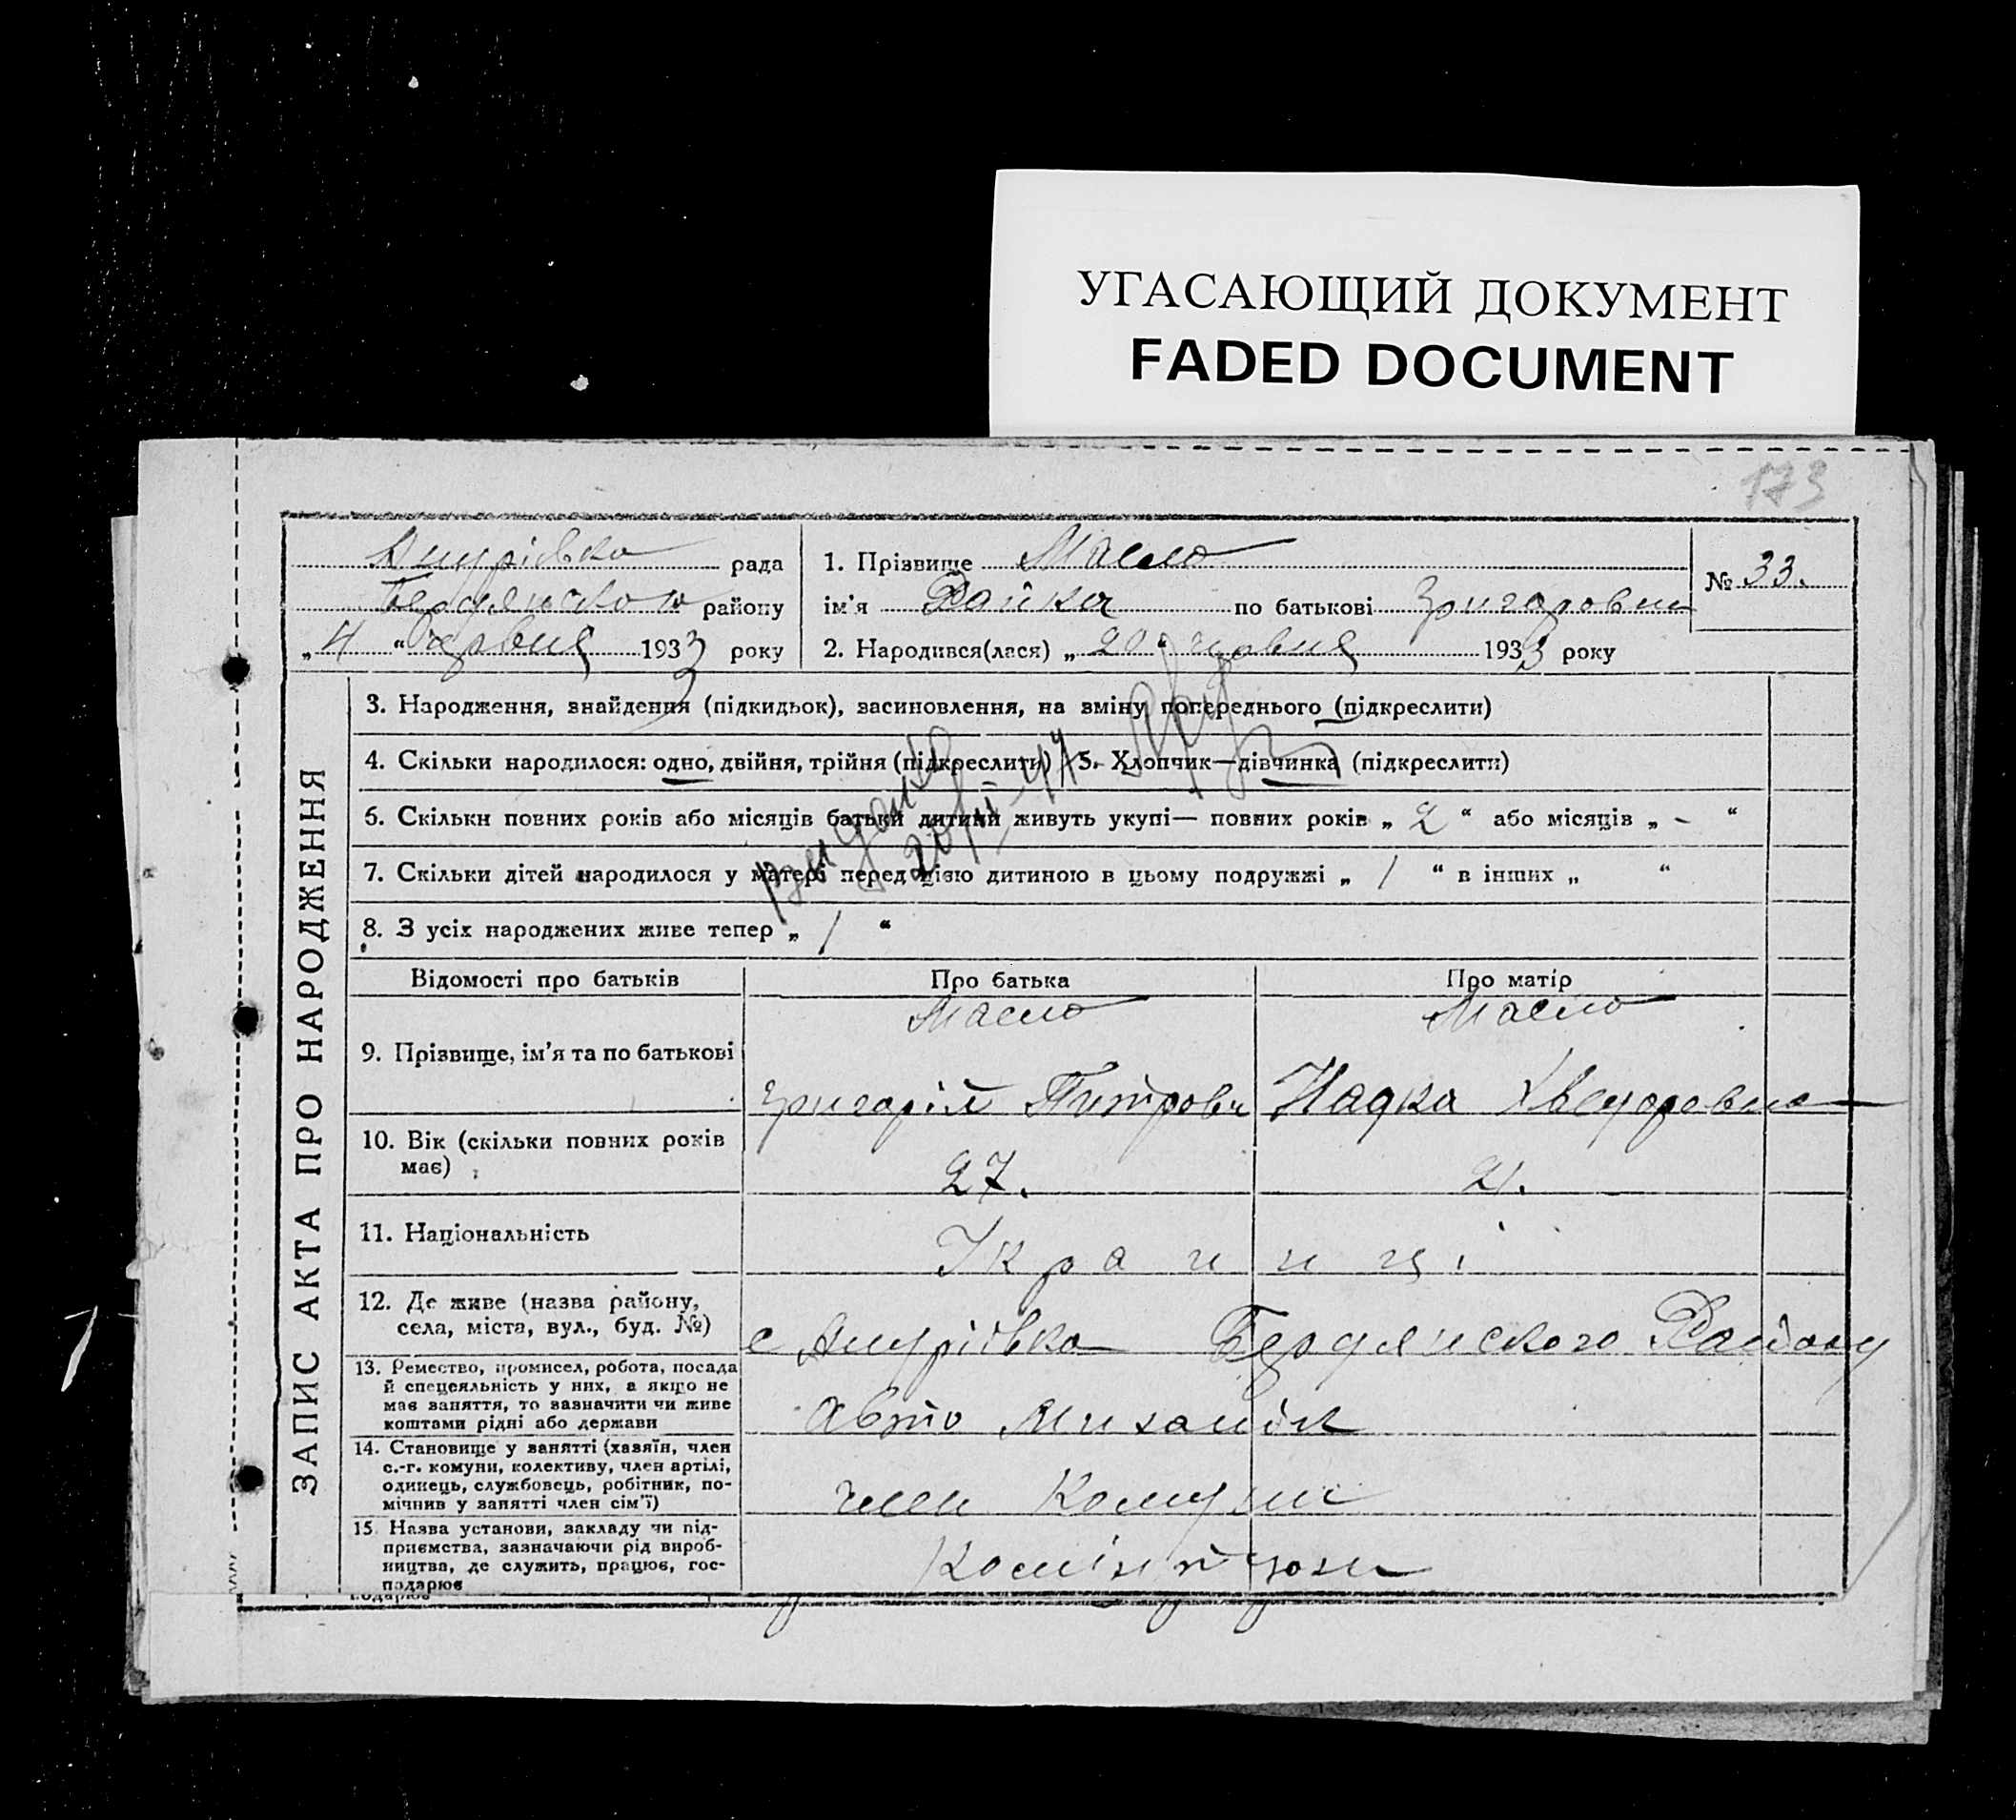 УГАСАЮЩИЙ ДОКУМЕНТ
FADED DOCUMENT
173
рада
1. Прізвище Масло
№ 33.
району
ім'я Райка по батькові Григаровни
„4“ 1933 року
2. Народився(лася) „20“ червня 1933 року
ЗАПИС АКТА ПРО НАРОДЖЕННЯ
3. Народження, знайдення (підкидьок), засиновлення, на зміну попереднього (підкреслити)
4. Скільки народилося: одно, двійня, трійня (підкреслити) 5. Хлопчик—дівчинка (підкреслити)
6. Скільки повних років або місяців батьки дитини живуть укупі— повних років „2“ або місяців „-“
7. Скільки дітей народилося у матері перед цією дитиною в цьому подружжі „1“ в інших „ “
8. З усіх народжених живе тепер „1“
Відомості про батьків Про батька Про матір
Масло Масло
9. Прізвище, ім'я та по батькові
Григорій Питрович Надка
10. Вік (скільки повних років
має)
27. 21.
11. Національність
Украинці
12. Де живе (назва району,
села, міста, вул., буд. №)
с Андрівка Бердянского Району
13. Ремество, промисел, робота, посада
й спецеяльність у них, а якщо не
має заняття, то зазначити чи живе
коштами рідні або держави
Авто Миханік
14. Становище у занятті (хазяїн, член
с.-г. комуни, колективу, член артілі,
одинець, службовець, робітник, по-
мічнив у занятті член сім'ї)
член Комуни
15. Назва установи, закладу чи під-
приємства, зазначаючи рід вироб-
ництва, де служить, працює, гос-
подарює